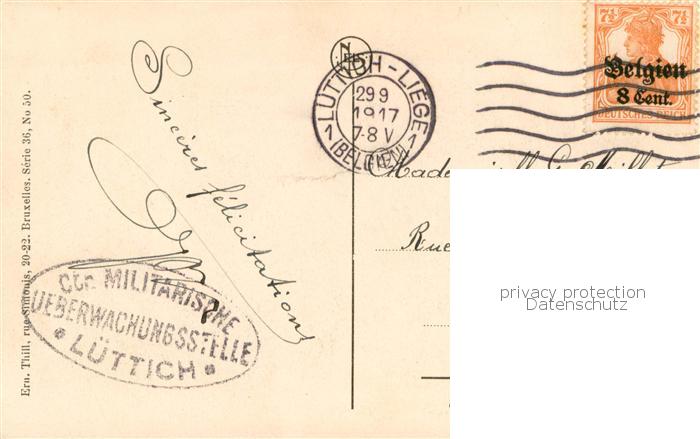 7½ 7½
Belgien
8 Cent.
DEUTSCHES REICH
LÜTTICH - LIÈGE
29 9
1917
7-8 V
1 1
(BELGIEN)
Sincères félicitations
Rue
privacy protection
Datenschutz
Cte MILITÄRISCHE
UEBERWACHUNGSSTELLE
* LÜTTICH *
Ern. Thill, rue Simonis, 20-22. Bruxelles. Série 36, No 50.